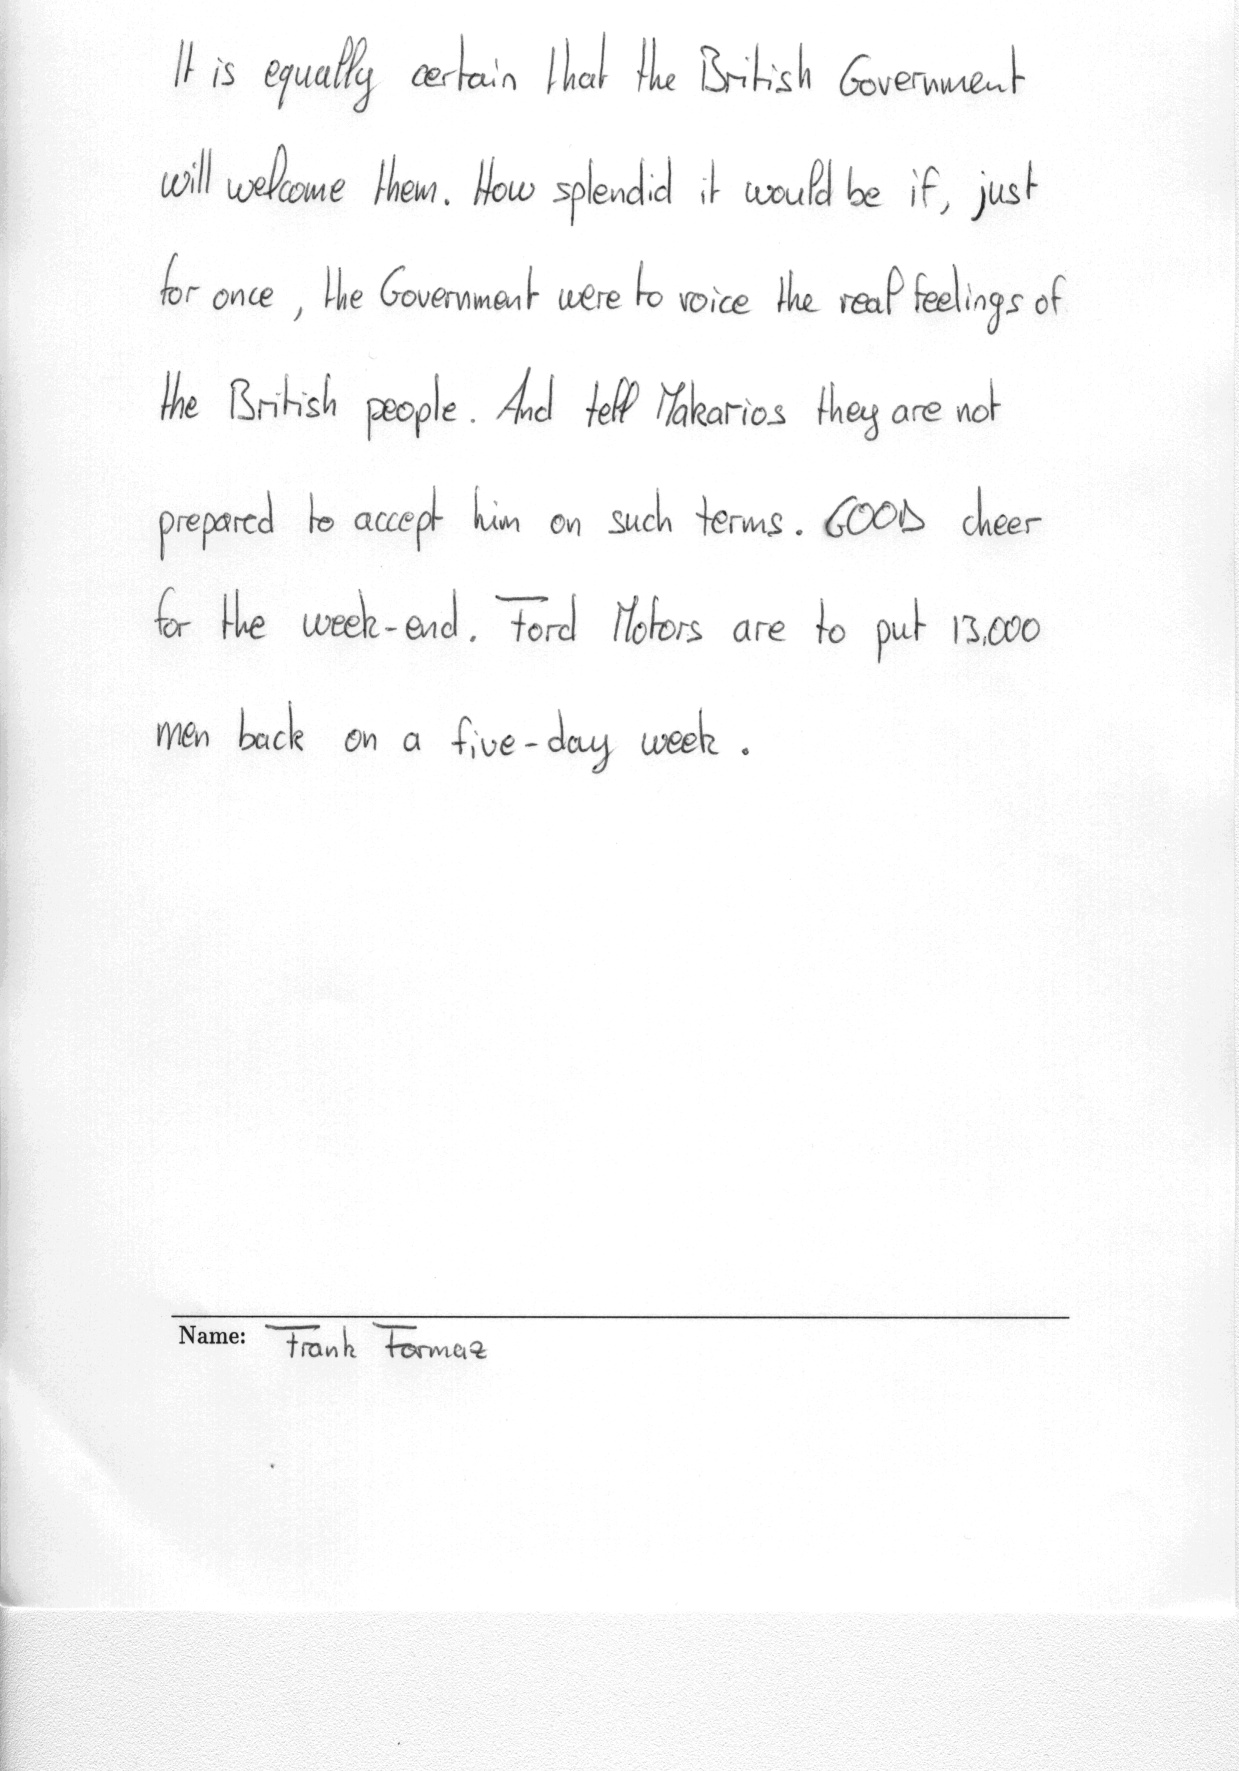 It is equally certain that the British Government
will welcome them. How splendid it would be if, just
for once, the Government were to voice the real feelings of
the British people. And tell Makarios they are not
prepared to accept him on such terms. GOOD cheer
for the week-end. Ford Motors are to put 13,000
men back on a five-day week.
Name: Frank Formaz